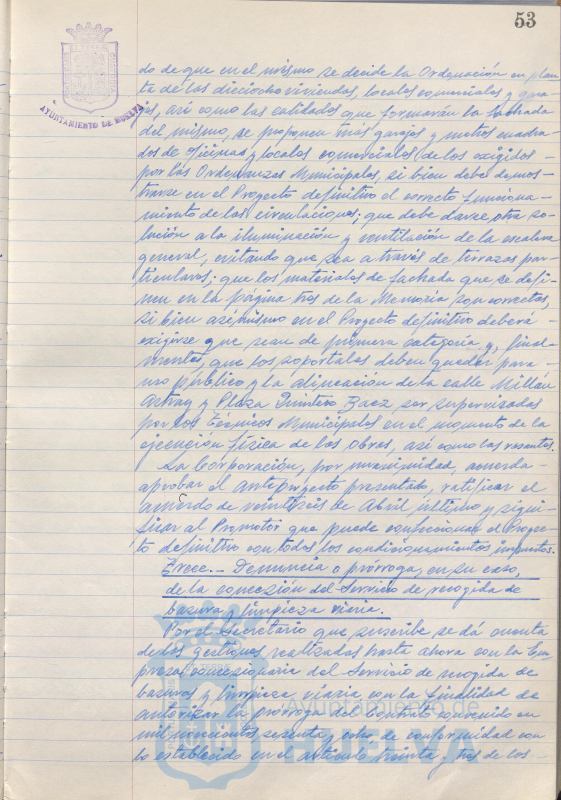 53
AYUNTAMIENTO DE HUELVA
do de que en el mismo se decide la Ordenación en plan
ta de las dieciocho viviendas, locales comerciales y gara
jes, así como las calidades que formarán la fachada
del mismo, se proponen mas garajes y metros cuadra
dos de oficinas y locales comerciales de los exigidos -
por las Ordenanzas Municipales, si bien debe demos-
trarse en el Proyecto definitivo el correcto funciona-
miento de las circulaciones; que debe darse otra so-
lución a la iluminación y ventilación de la escalera
general, evitando que sea a través de terrazas par-
ticulares; que los materiales de fachada que se defi-
nen en la página tres de la Memoria son correctos,
si bien asímismo en el Proyecto definitivo deberá -
exigirse que sean de primera categoría y, final-
mente, que los soportales deben quedar para -
uso público y la alineación de la calle Millán
Astray y Plaza Quintero Baez ser supervisadas
por los Técnicos Municipales en el momento de la
ejecución física de las obras, así como las rasantes.
La Corporación, por unanimidad, acuerda -
aprobar el anteproyecto presentado, ratificar el
acuerdo de veintiseis de Abril último y signi-
ficar al Promotor que puede confeccionar el Proyec-
to definitivo con todos los condicionamientos impuestos.
Trece.- Denuncia o prórroga, en su caso,
de la concesión del Servicio de recogida de
basura y limpieza viaria.
Por el Secretario que suscribe se dá cuenta
de las gestiones realizadas hasta ahora con la Em-
presa concesionaria del Servicio de recogida de
basuras y limpieza viaria con la finalidad de
autorizar la prórroga del Contrato convenido en
mil novecientos sesenta y ocho de conformidad con
lo establecido en el artículo treinta y tres de los -
Ayuntamiento de
HUELVA